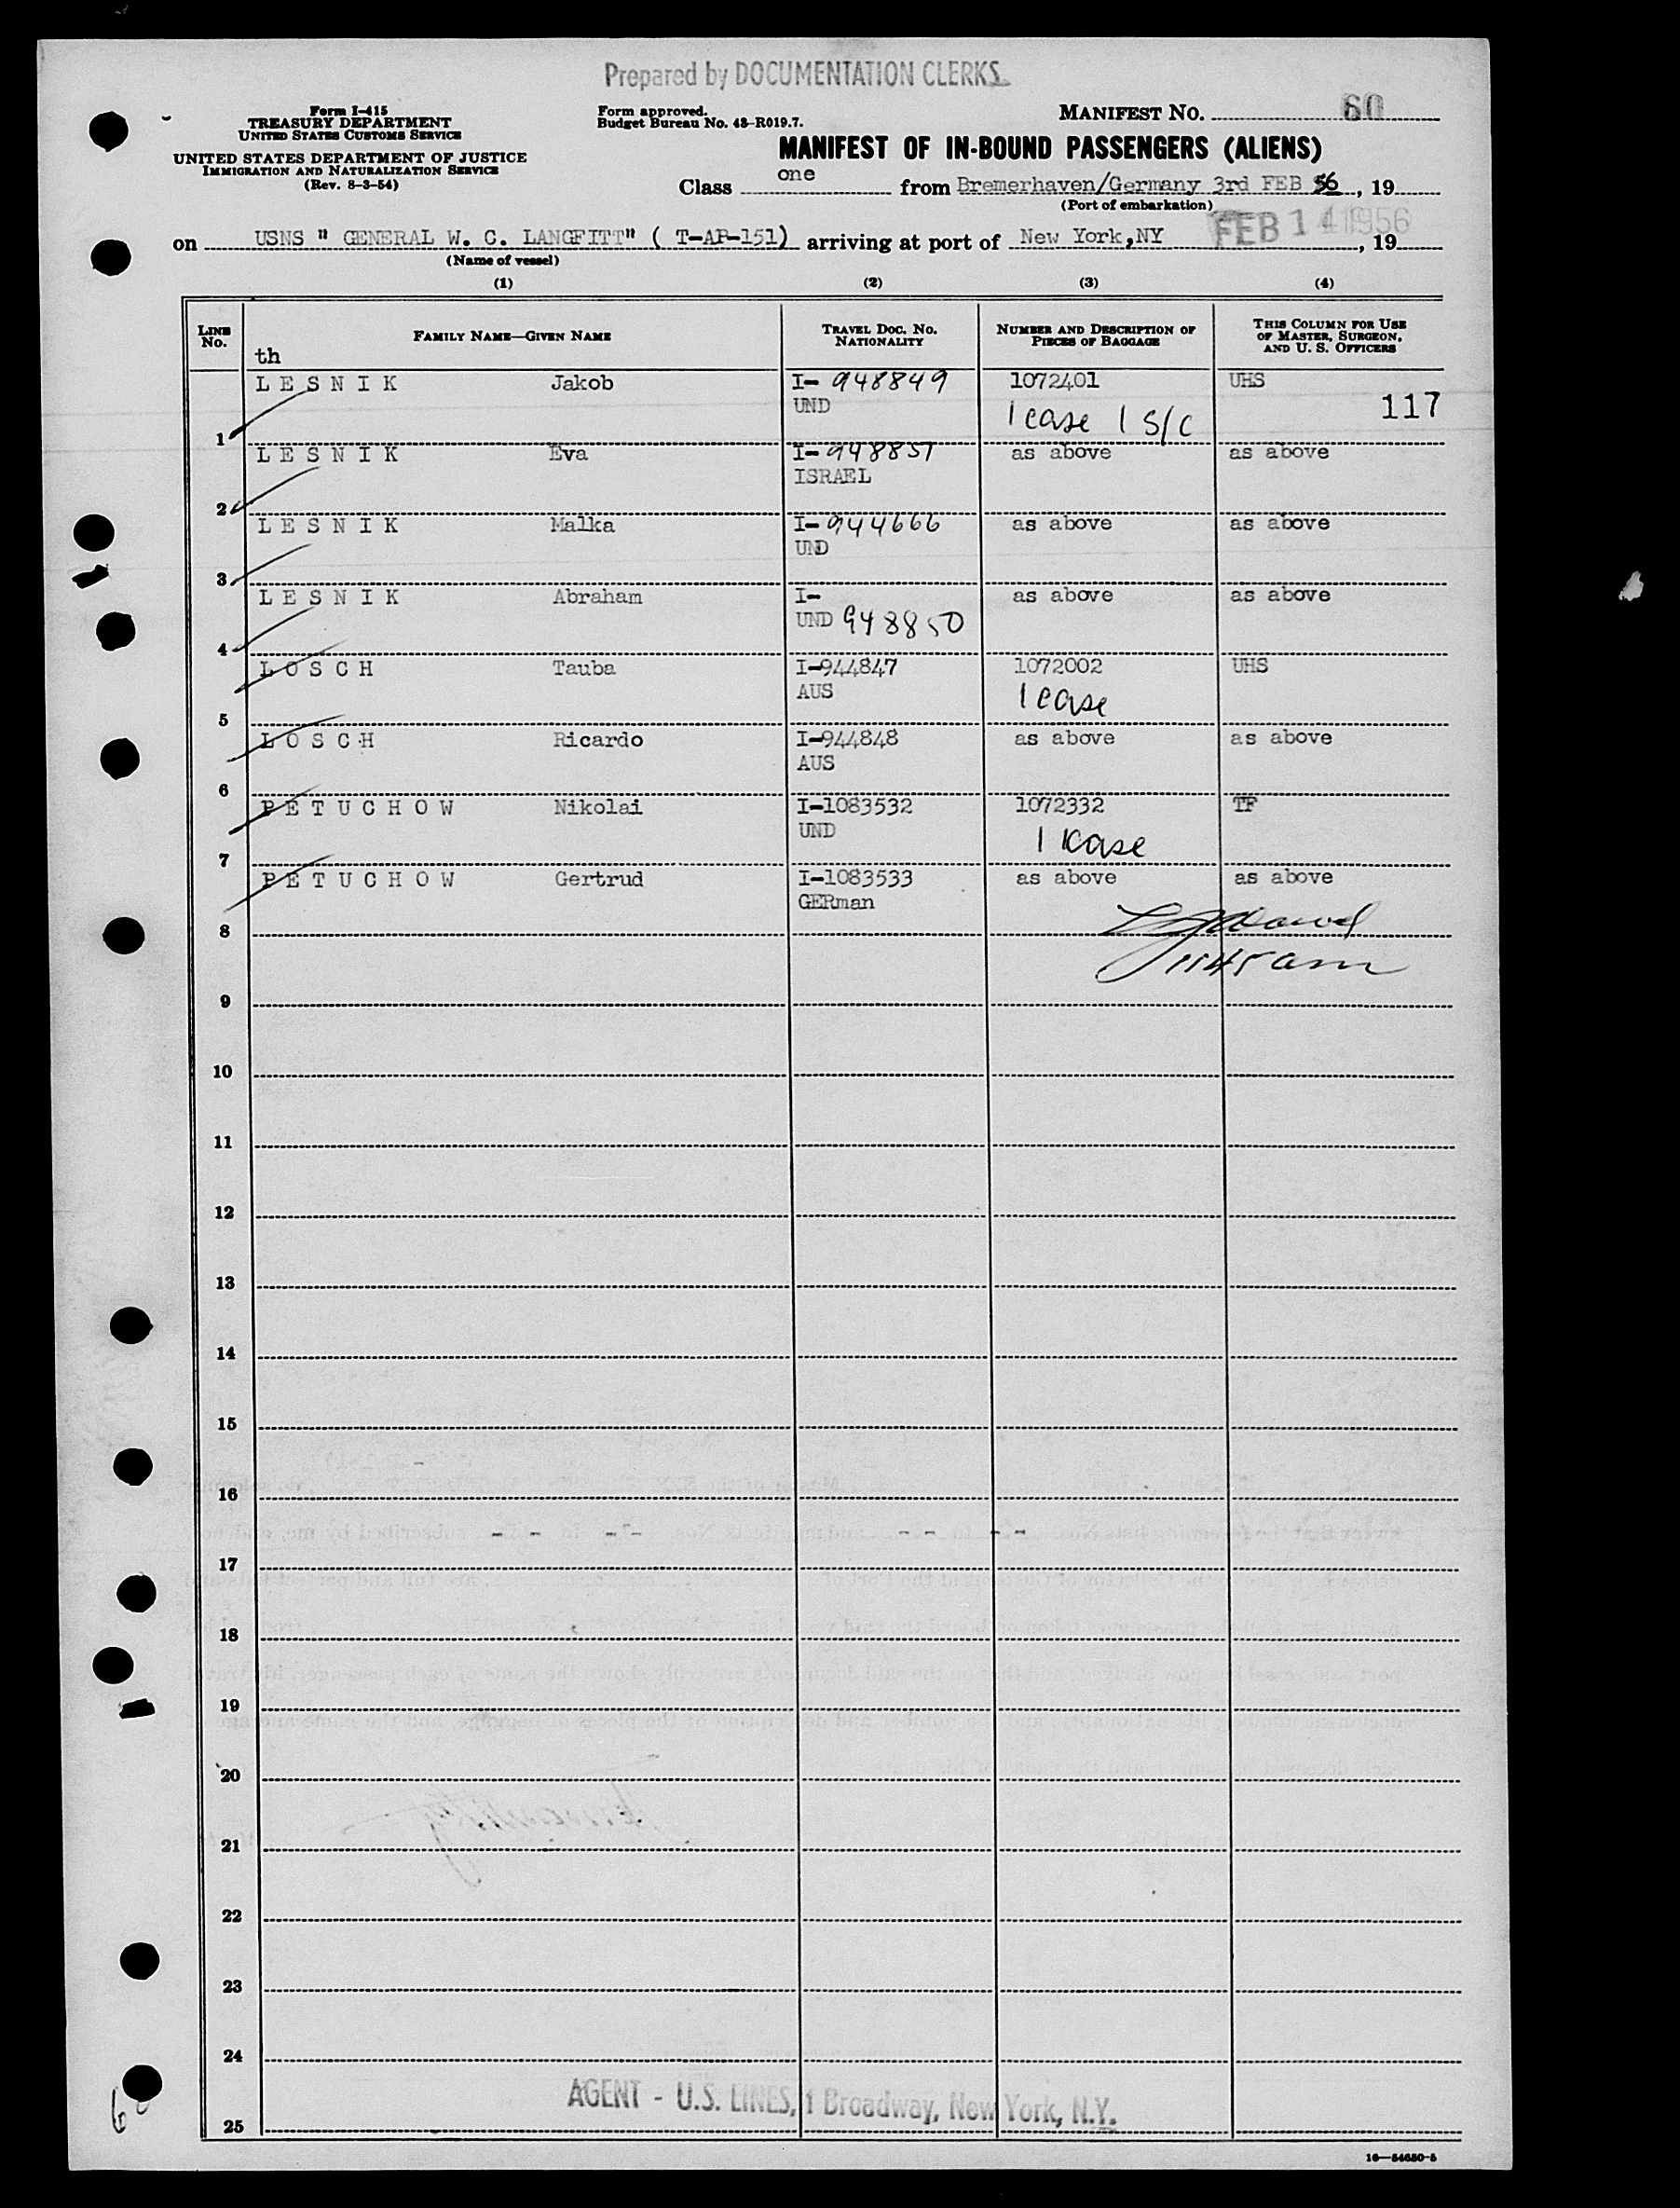 Prepared by DOCUMENTATION CLERKS
Form I-415
TREASURY DEPARTMENT
UNITED STATES CUSTOMS SERVICE
UNITED STATES DEPARTMENT OF JUSTICE
IMMIGRATION AND NATURALIZATION SERVICE
(Rev. 8-3-54)
Form approved.
Budget Bureau No. 43-R019.7.
MANIFEST NO. 60
MANIFEST OF IN-BOUND PASSENGERS (ALIENS)
Class one from Bremerhaven/Germany 3rd FEB 56, 19
(Port of embarkation)
on USNS " GENERAL W. C. LANGFITT" ( T-AP-151) arriving at port of New York,NY FEB 14 1956, 19
(Name of vessel)
(1) (2) (3) (4)
LINE No. FAMILY NAME—GIVEN NAME TRAVEL DOC. NO. NATIONALITY NUMBER AND DESCRIPTION OF PIECES OF BAGGAGE THIS COLUMN FOR USE OF MASTER, SURGEON, AND U. S. OFFICERS
th
L E S N I K Jakob I- 948849 1072401 UHS
UND 1 case 1 S/C 117
1
L E S N I K Eva I-948851 as above as above
ISRAEL
2
L E S N I K Malka I-944666 as above as above
UND
3
L E S N I K Abraham I- as above as above
UND 948850
4
L O S C H Tauba I-944847 1072002 UHS
AUS 1 case
5
L O S C H Ricardo I-944848 as above as above
AUS
6
P E T U C H O W Nikolai I-1083532 1072332 TF
UND 1 Kase
7
P E T U C H O W Gertrud I-1083533 as above as above
GERman
8
1145 am
9
10
11
12
13
14
15
16
17
18
19
20
21
22
23
24
AGENT - U.S. LINES, 1 Broadway, New York, N.Y.
25
16—54650-5